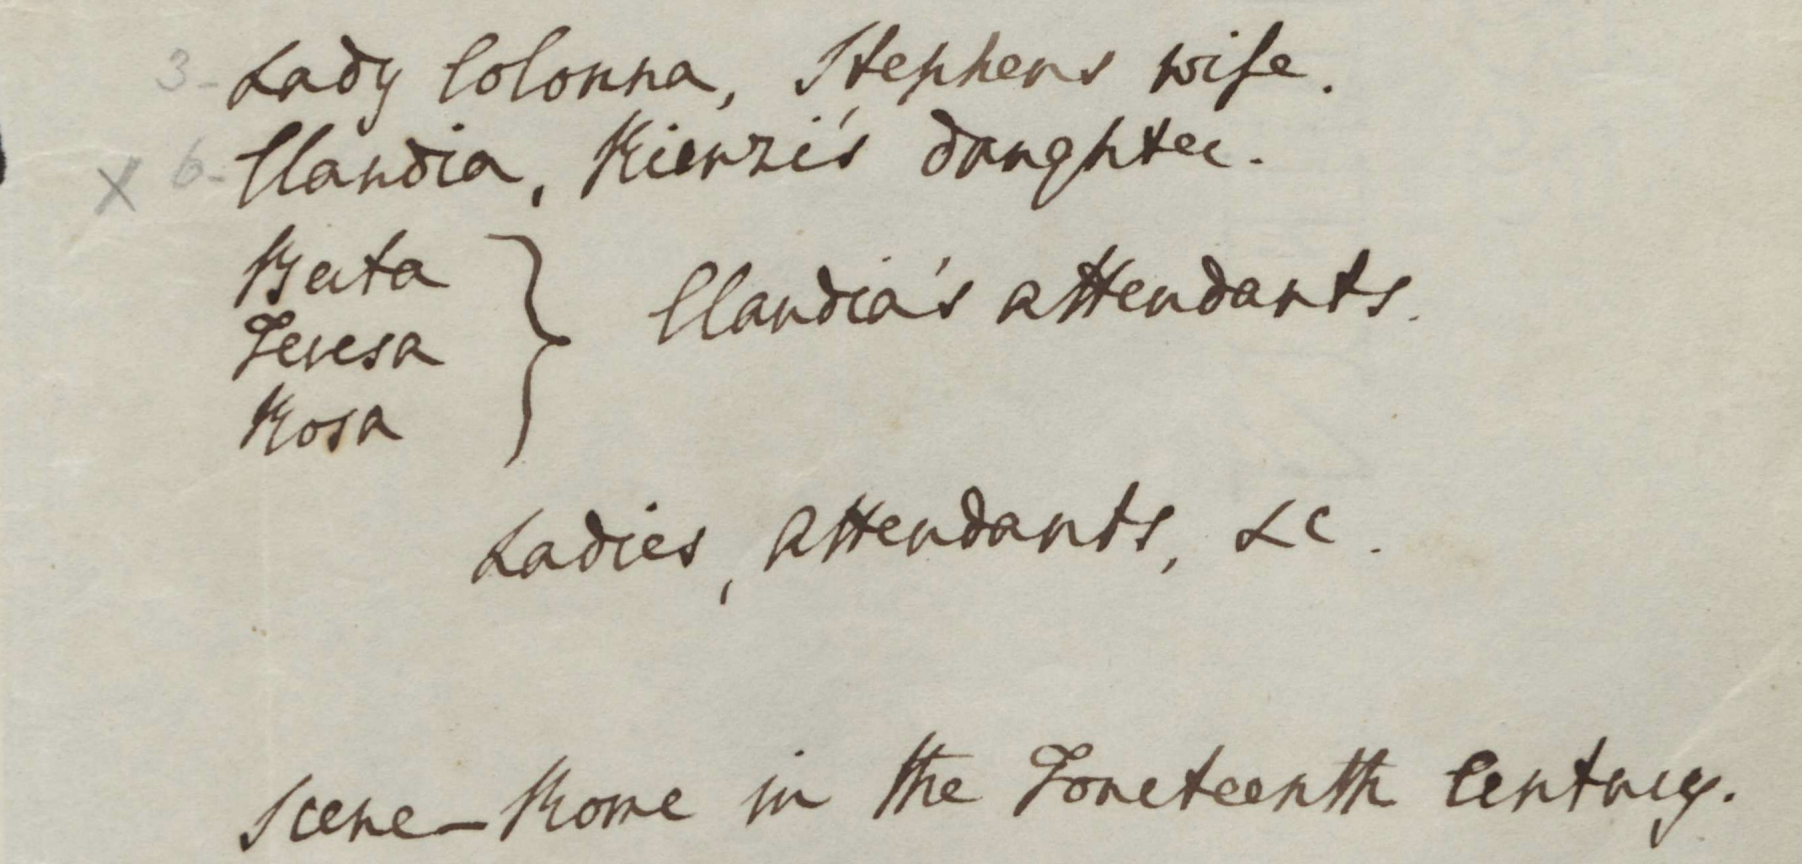 3- Lady Colonna, Stephens wife.
X 6- Claudia, Rienzi's daughter.
Berta
Teresa
Rosa
} Claudia's attendants.
Ladies, Attendants, &c.
Scene—Rome in the Fourteenth Century.